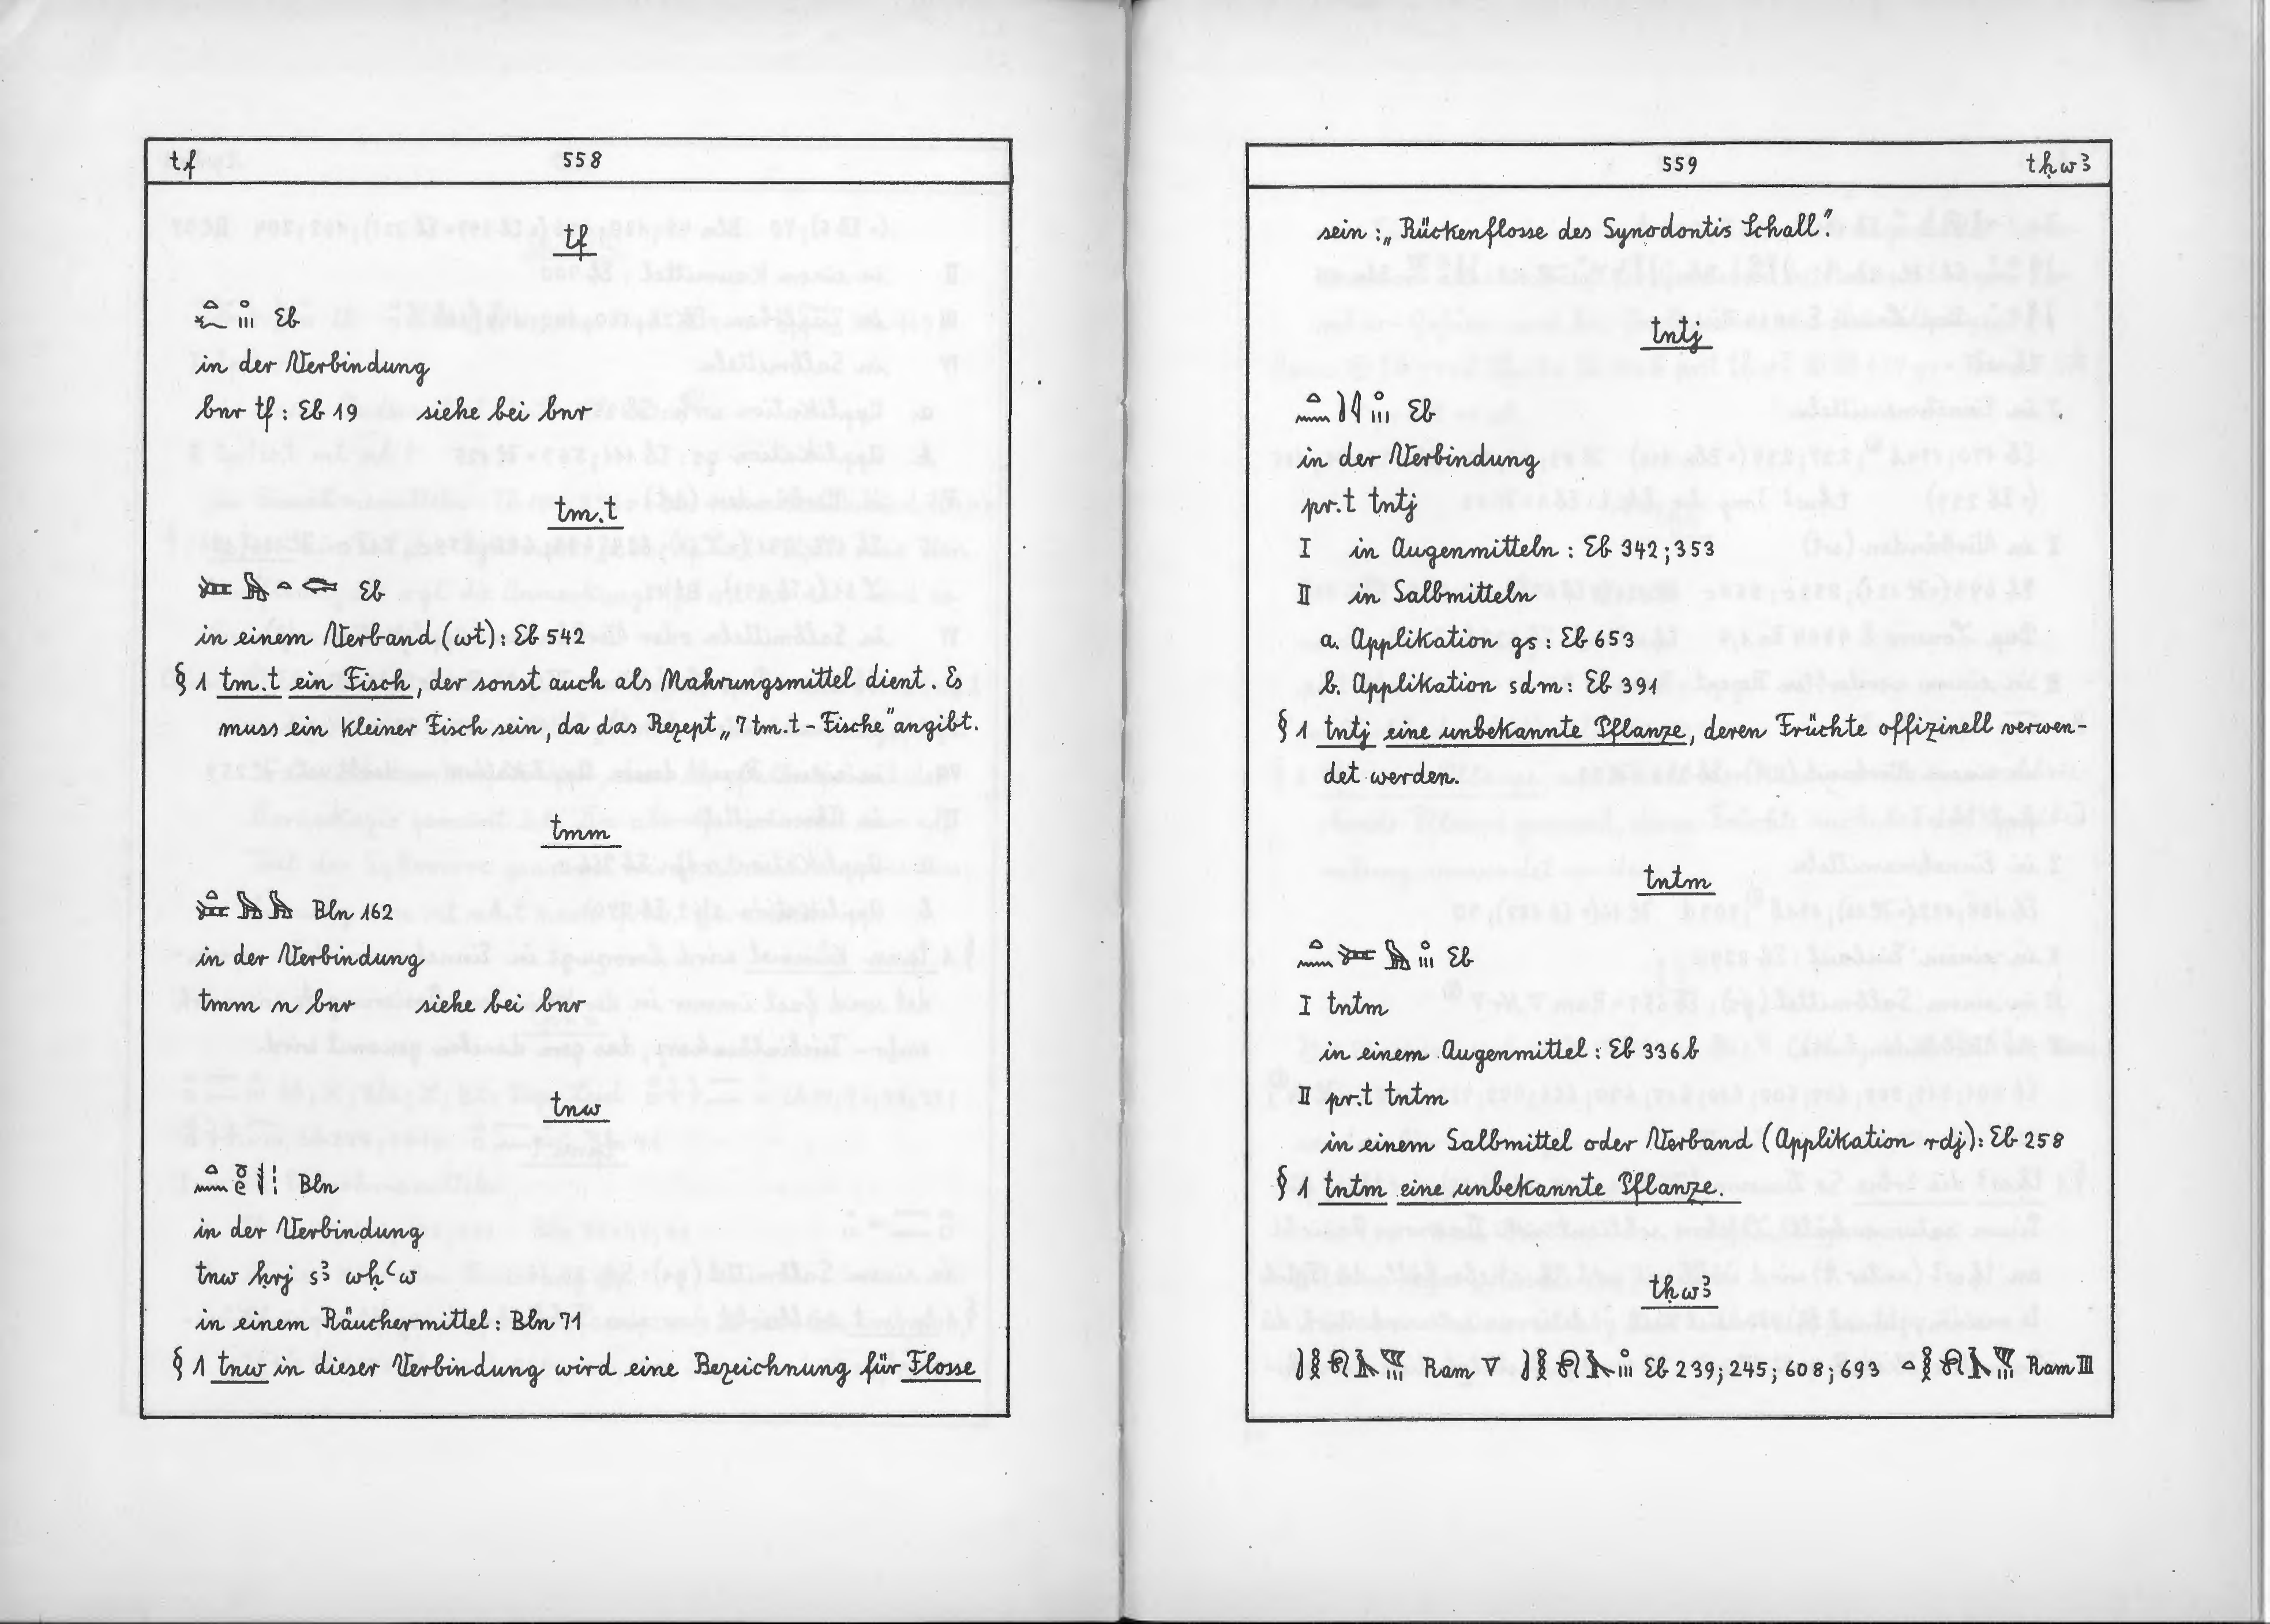 tf 558
tf
Eb
in der Verbindung
bnr tf : Eb 19 siehe bei bnr
tm.t
Eb
in einem Verband (wt) : Eb 542
§ 1 tm.t ein Fisch, der sonst auch als Nahrungsmittel dient. Es
muss ein kleiner Fisch sein, da das Rezept „7 tm.t - Fische" angibt.
tmm
Bln 162
in der Verbindung
tmm n bnr siehe bei bnr
tnw
Bln
in der Verbindung
tnw ḥrj sꜣ wḥꜥw
in einem Räuchermittel : Bln 71
§ 1 tnw in dieser Verbindung wird eine Bezeichnung für Flosse
559 tḥwꜣ
sein : „Rückenflosse des Synodontis Schall".
tntj
Eb
in der Verbindung
pr.t tntj
I in Augenmitteln : Eb 342 ; 353
II in Salbmitteln
a. Applikation gs : Eb 653
b. Applikation sdm : Eb 391
§ 1 tntj eine unbekannte Pflanze, deren Früchte offizinell verwen-
det werden.
tntm
Eb
I tntm
in einem Augenmittel : Eb 336 b
II pr.t tntm
in einem Salbmittel oder Verband (Applikation rdj) : Eb 258
§ 1 tntm eine unbekannte Pflanze.
tḥwꜣ
Ram V Eb 239 ; 245 ; 608 ; 693 Ram III